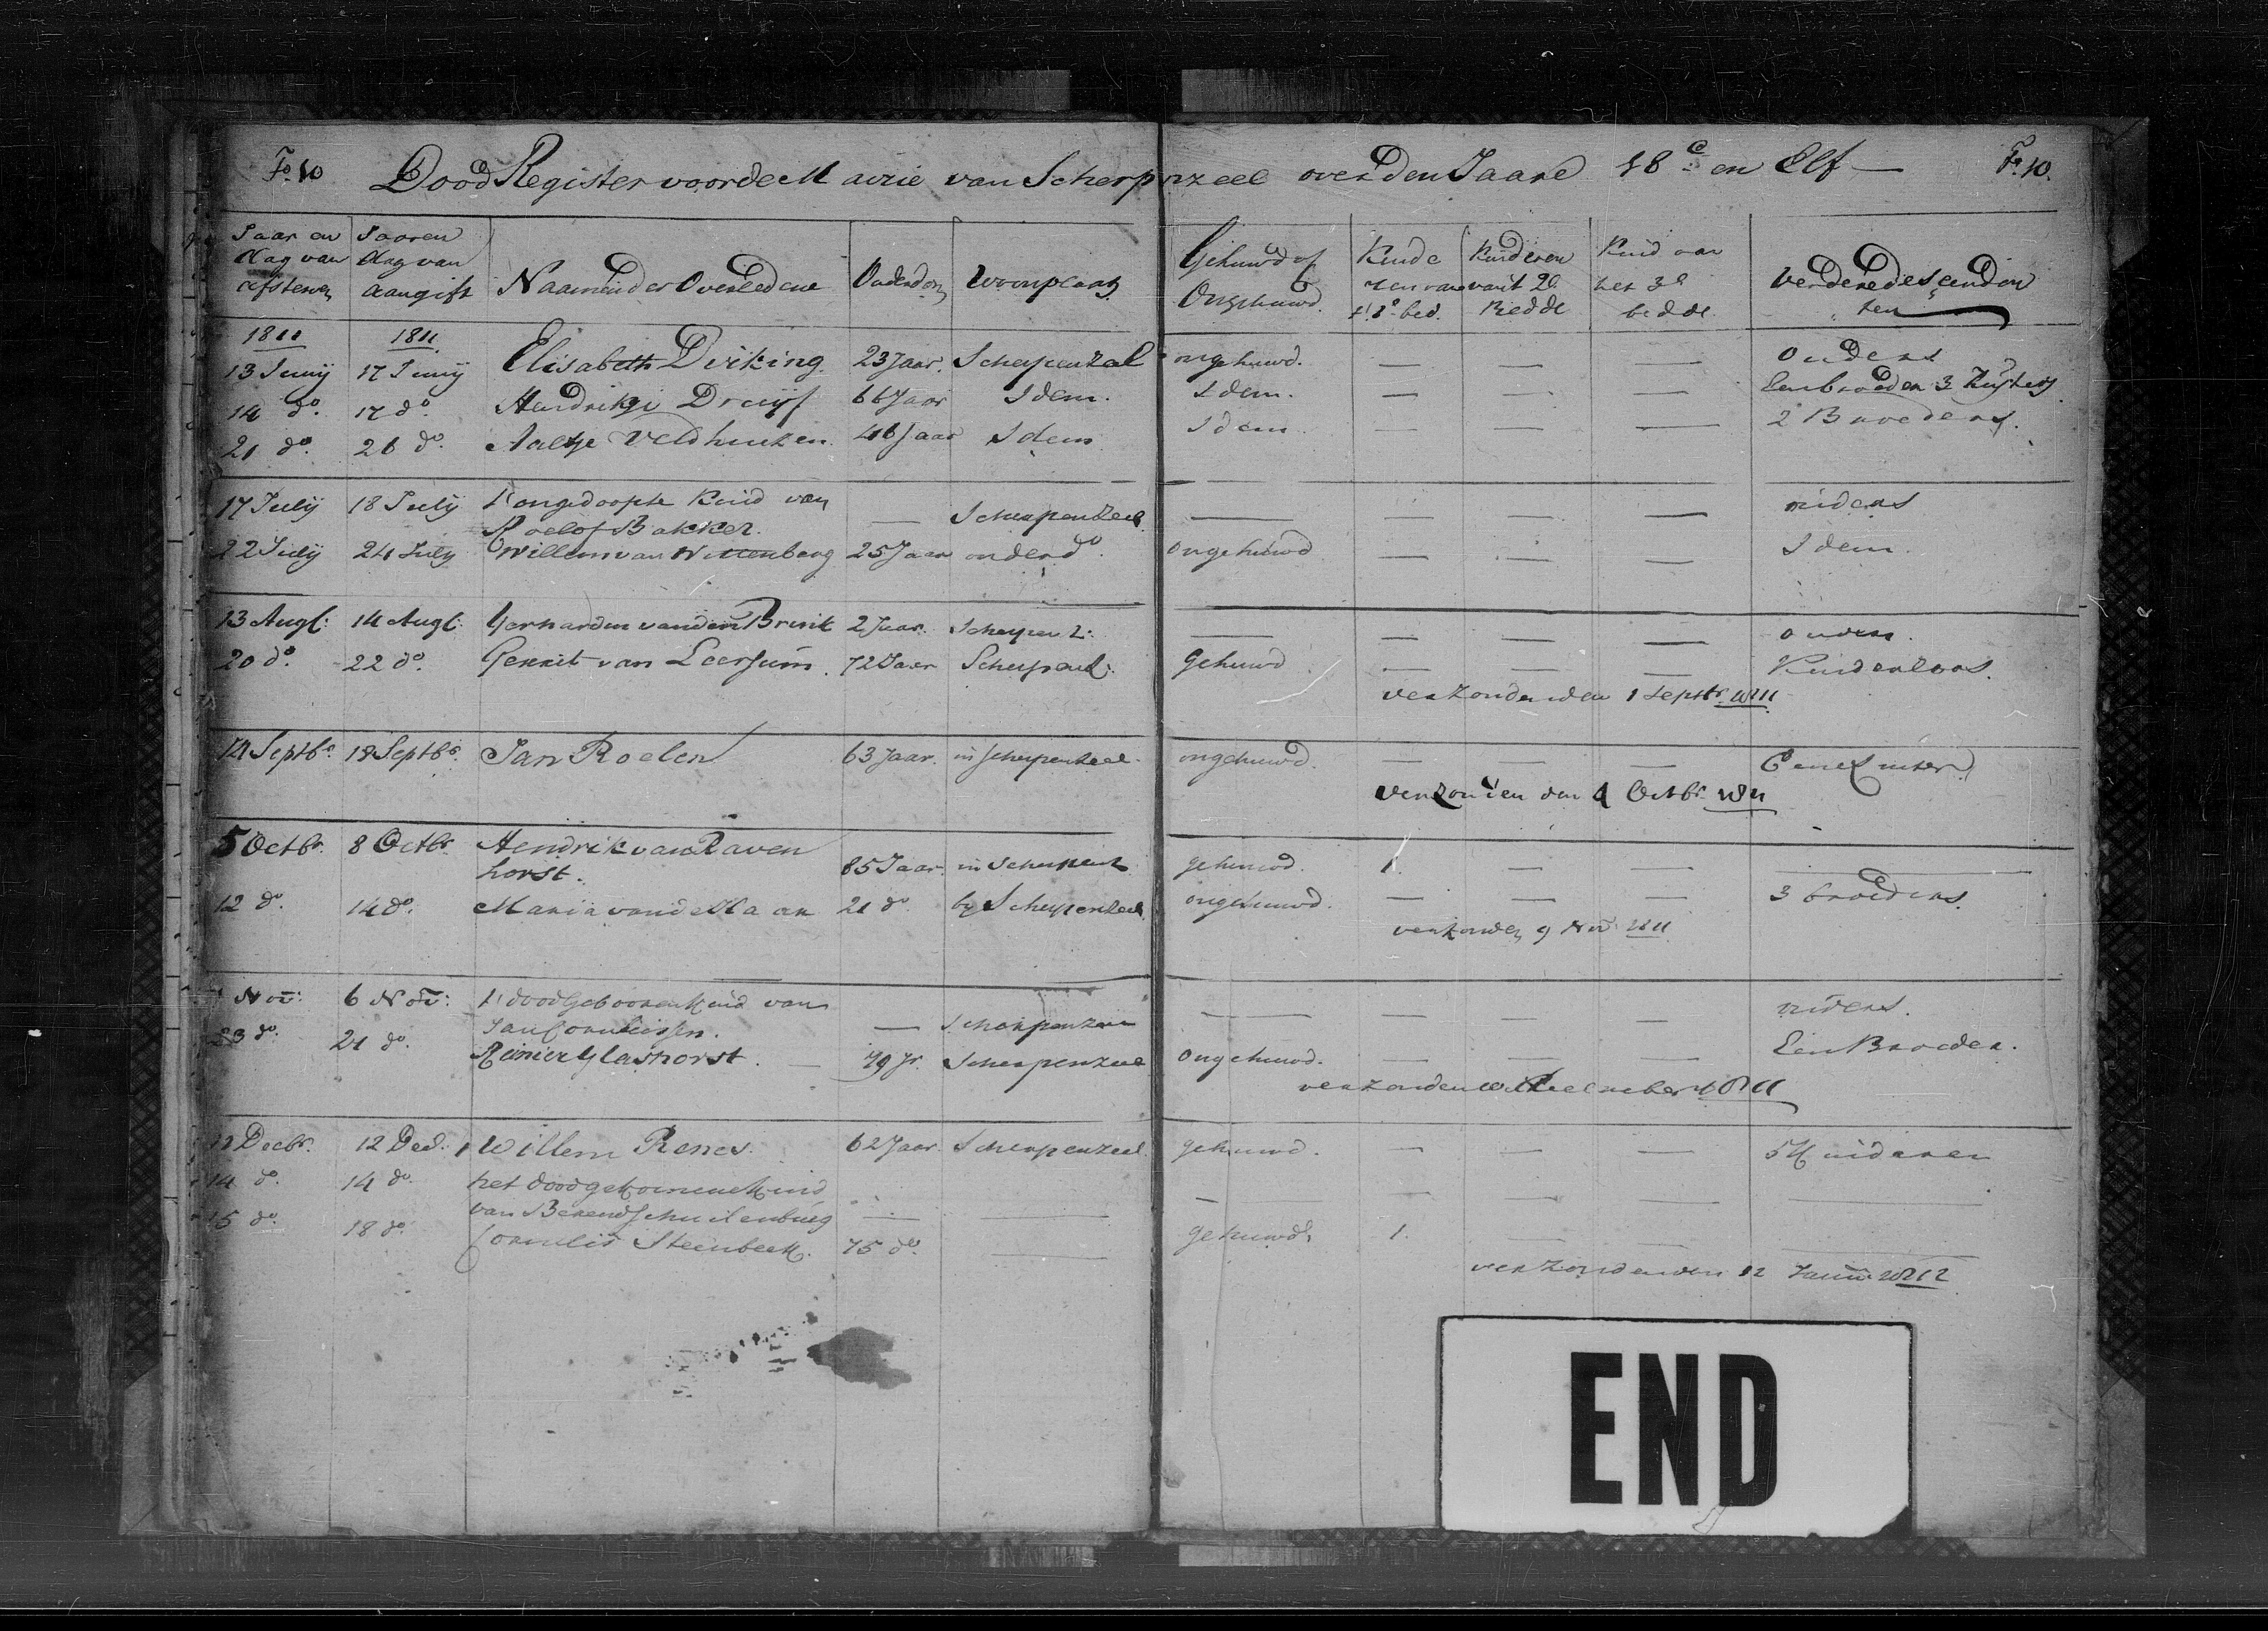 Fo. 10 Dood Register voor de Mairie van Scherpenzeel over den Jaare 18c en Elf — Fo. 10.
Jaar en dag van afsterven | Jaar en dag van aangift | Naamen der Overledene | Ouderdom | Woonplaats | Gehuwd of Ongehuwd. | Kinderen van 't 1e bed. | Kinderen van 't 2e Bedde | Kind van het 3e bedde | Verdere descendenten
1811 1811
13 Junij 17 Junij Elisabeth Dirking 23 Jaar. Scherpenzeel ongehuwd. — — — Ouders
14 do. 17 do. Hendrikje Druijf 66 Jaar Idem. Idem. — — — Een broeder 3 Zusters
21 do. 26 do. Aaltje Veldhuizen 46 Jaar Idem Idem — — — 2 Broeders.
17 Julij 18 Julij 't ongedoopte Kind van
Roelof Bakker. — Scherpenzeel — — — — ouders
22 Julij 24 July Willem van Wittenberg 25 Jaar onder do. Ongehuwd — — — Idem.
13 Augs: 14 Augs: van den Brink 2 Jaar. Scherpenz: — — — — ouders.
20 do. 22 do. Gerrit van Leersum. 72 Jaar Scherpenz: Gehuwd — — — Kinderloos.
verzonden den 1 Septr. 1811
14 Septbr. 18 Septbr. Jan Roelen 63 Jaar. in Scherpenzeel. ongehuwd. — — — Eene Zuster
Verzonden den 4 Octbr. 1811
5 Octbr. 8 Octbr. Hendrik van Raven
horst. 85 Jaar. in Scherpenz gehuwd. 1. — — —
12 do. 14 do. Maria van de Maar 21 do. by Scherpenzeel. ongehuwd. — — — 3 broeders.
verzonden 9 Nov 1811
Nov: 6 Nov: 't doodgebooren Kind van
Jan Cornelissen. — Scherpenzeel — — — — ouders.
23 do. 21 do. Reinier Glashorst. — 79 Jr. Scherpenzeel Ongehuwd. — — — Een Broeder.
verzonden December 1811
12 Decbr. 12 Dec: Willem Renes. 62 Jaar. Scherpenzeel. gehuwd. — — — 5 Kinderen
14 do. 14 do. het doodgekomene Kind
van Berend Schuilenburg — — — — — — —
15 do. 18 do. Cornelis Steenbeek. 75 do. — gehuwd 1. — — —
verzonden den 12 Januari 1812
END